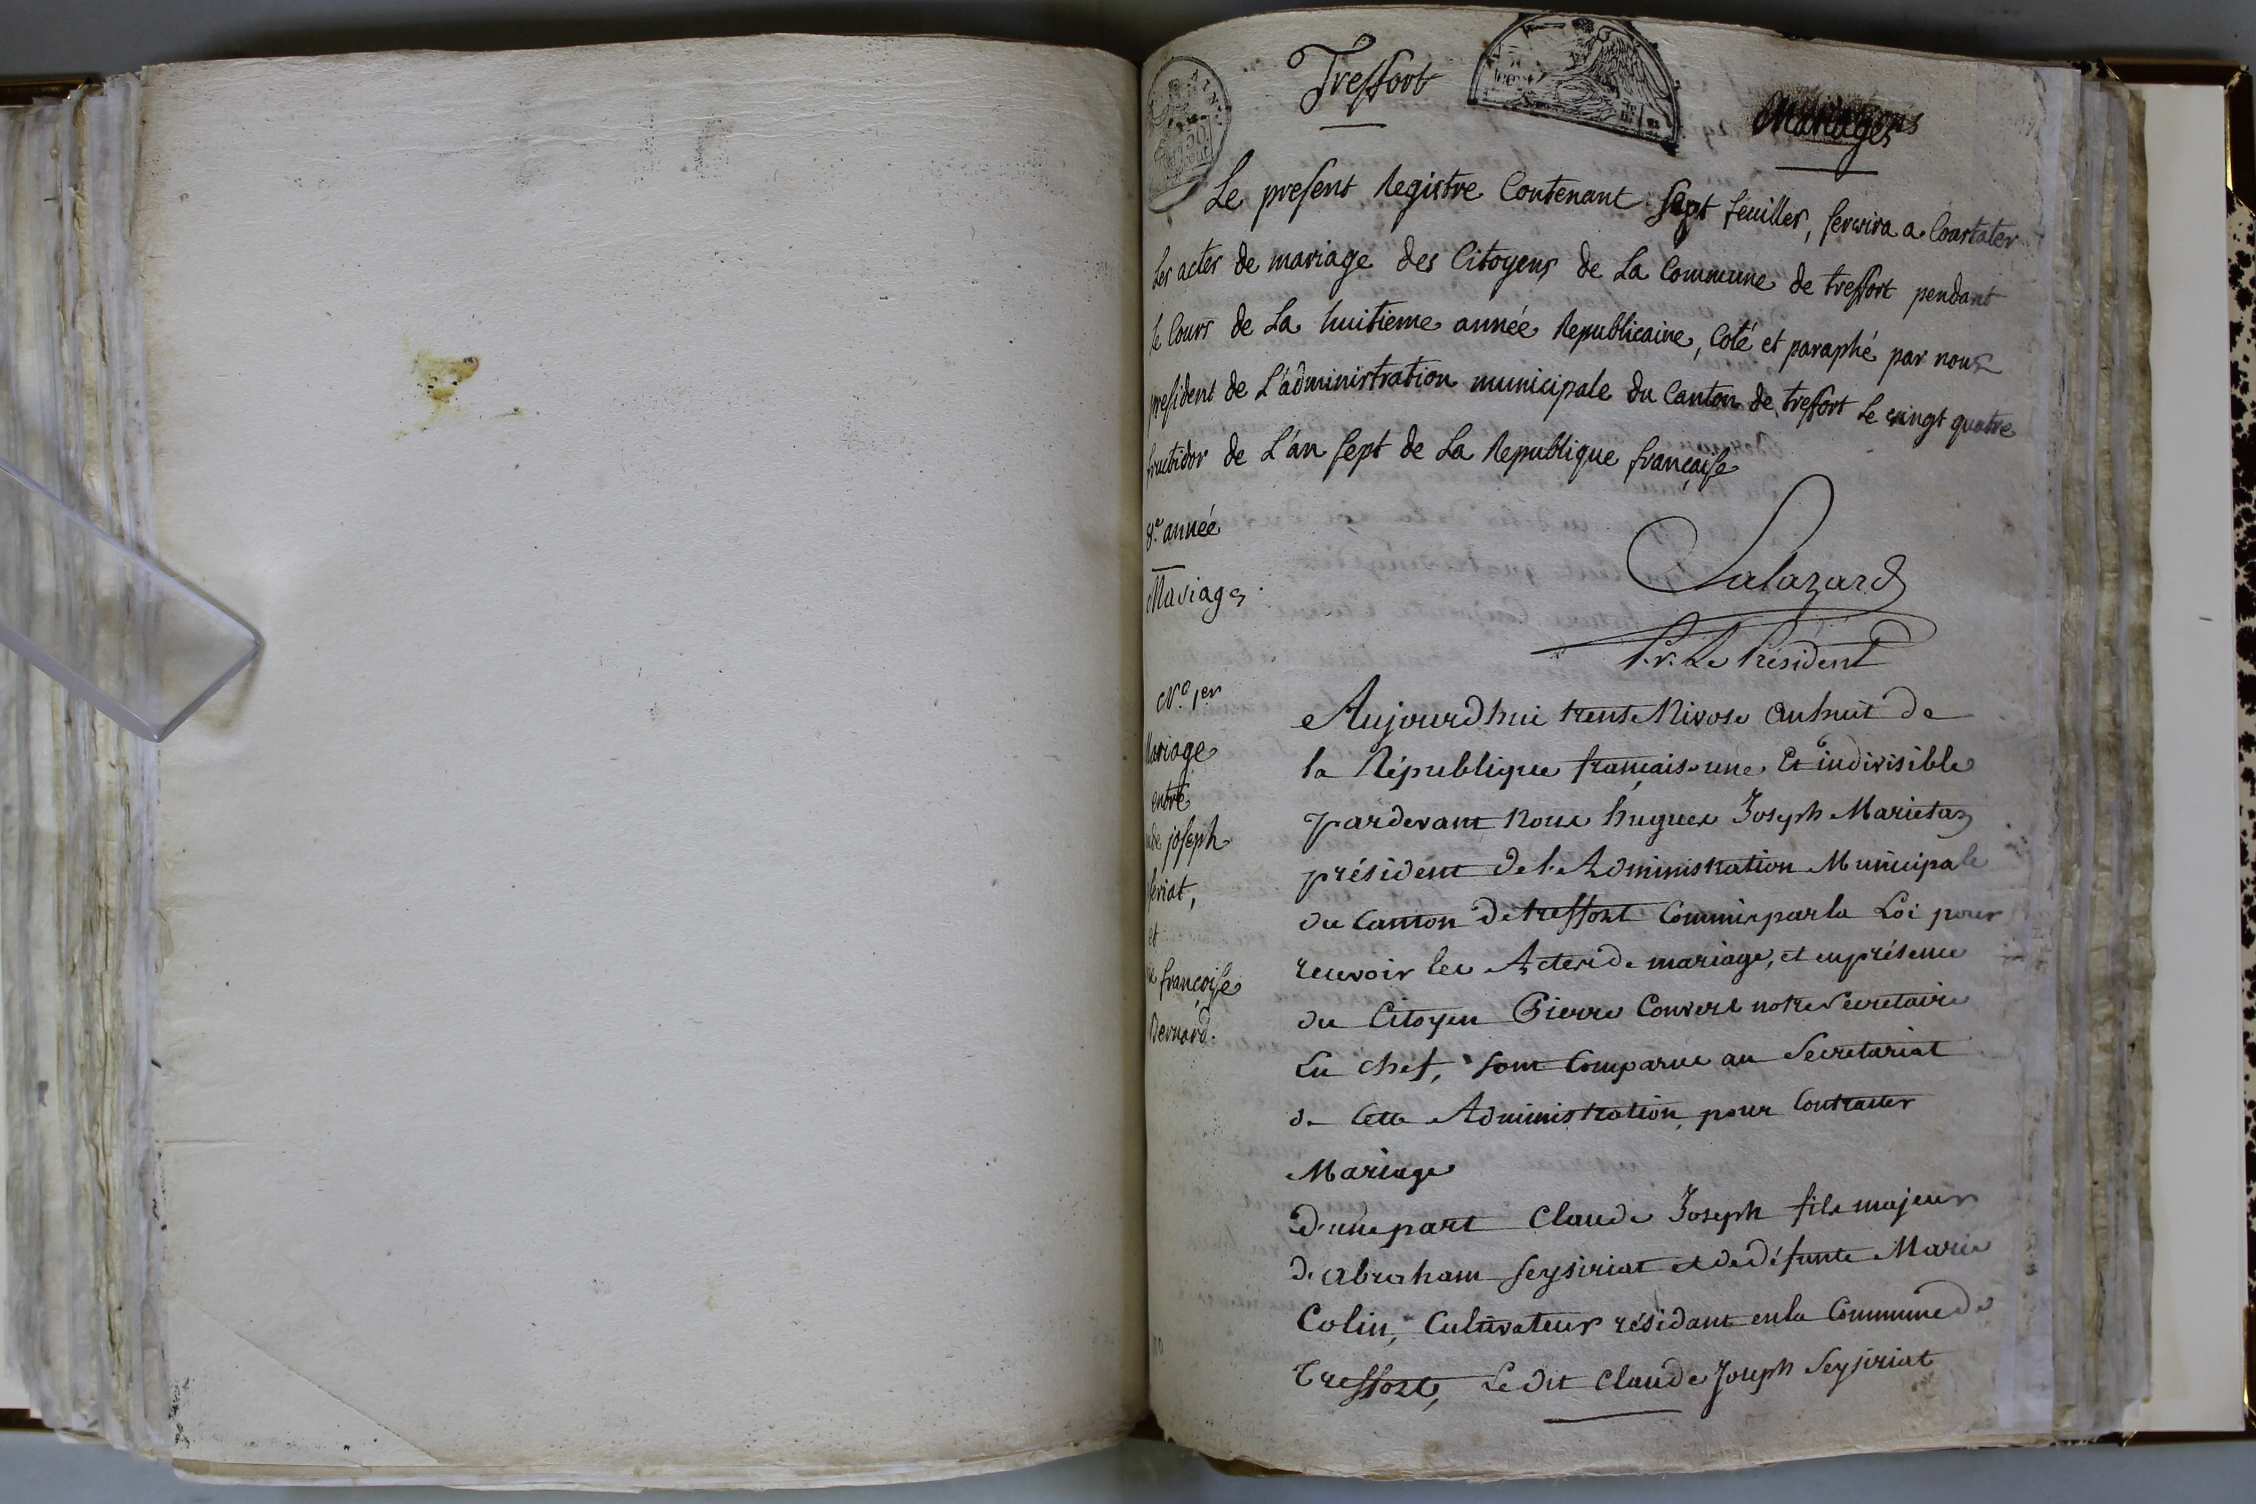 Treffort
Mariages
Le present Registre Contenant sept feuilles, servira a Constater
Les actes de mariage des Citoyens de La Commune de treffort pendant
le Cours de La huitieme année Republicaine, Coté et paraphé par nous
president de L'administration municipale du Canton de treffort Le vingt quatre
fructidor de L'an sept de La Republique française
8.e année
Mariages
Salazard
P.r. Le Président
N.o 1.er
Mariage
entre
joseph
et
françoise
Bernard.
Aujourdhui trente Nivose an huit de
la République française une Et indivisible
pardevant Nous hugues Joseph Marietas
président de l'Administration Municipale
du Canton de treffort Commis par la Loi pour
recevoir les Actes de mariage, et en présence
du Citoyen Pierre Convert notre Secretaire
En chef, sont Comparus au Secretariat
de Cette Administration, pour Contracter
Mariage
d'une part Claude Joseph fils majeur
de Abraham Seysiriat et de défunte Marie
Colin, Cultivateur résidant en la Commune de
Treffort, Le dit Claude Joseph Seysiriat